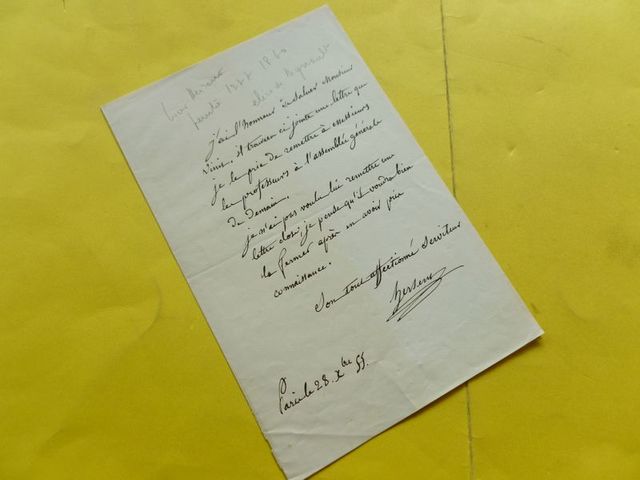 Léon
peintre 1777 1860
élève de Regnault
j'ai l'honneur de saluer Monsieur
Vinit, il trouvera ci jointe une lettre que
je le prie de remettre à messieurs
les professeurs à l'assemblée générale
de demain.
je n'ai pas voulu lui remettre une
lettre close, je pense qu'il voudra bien
la fermer après en avoir pris
connaissance.
Son tout affectionné serviteur
hersent
Paris le 28. Xbre 55.